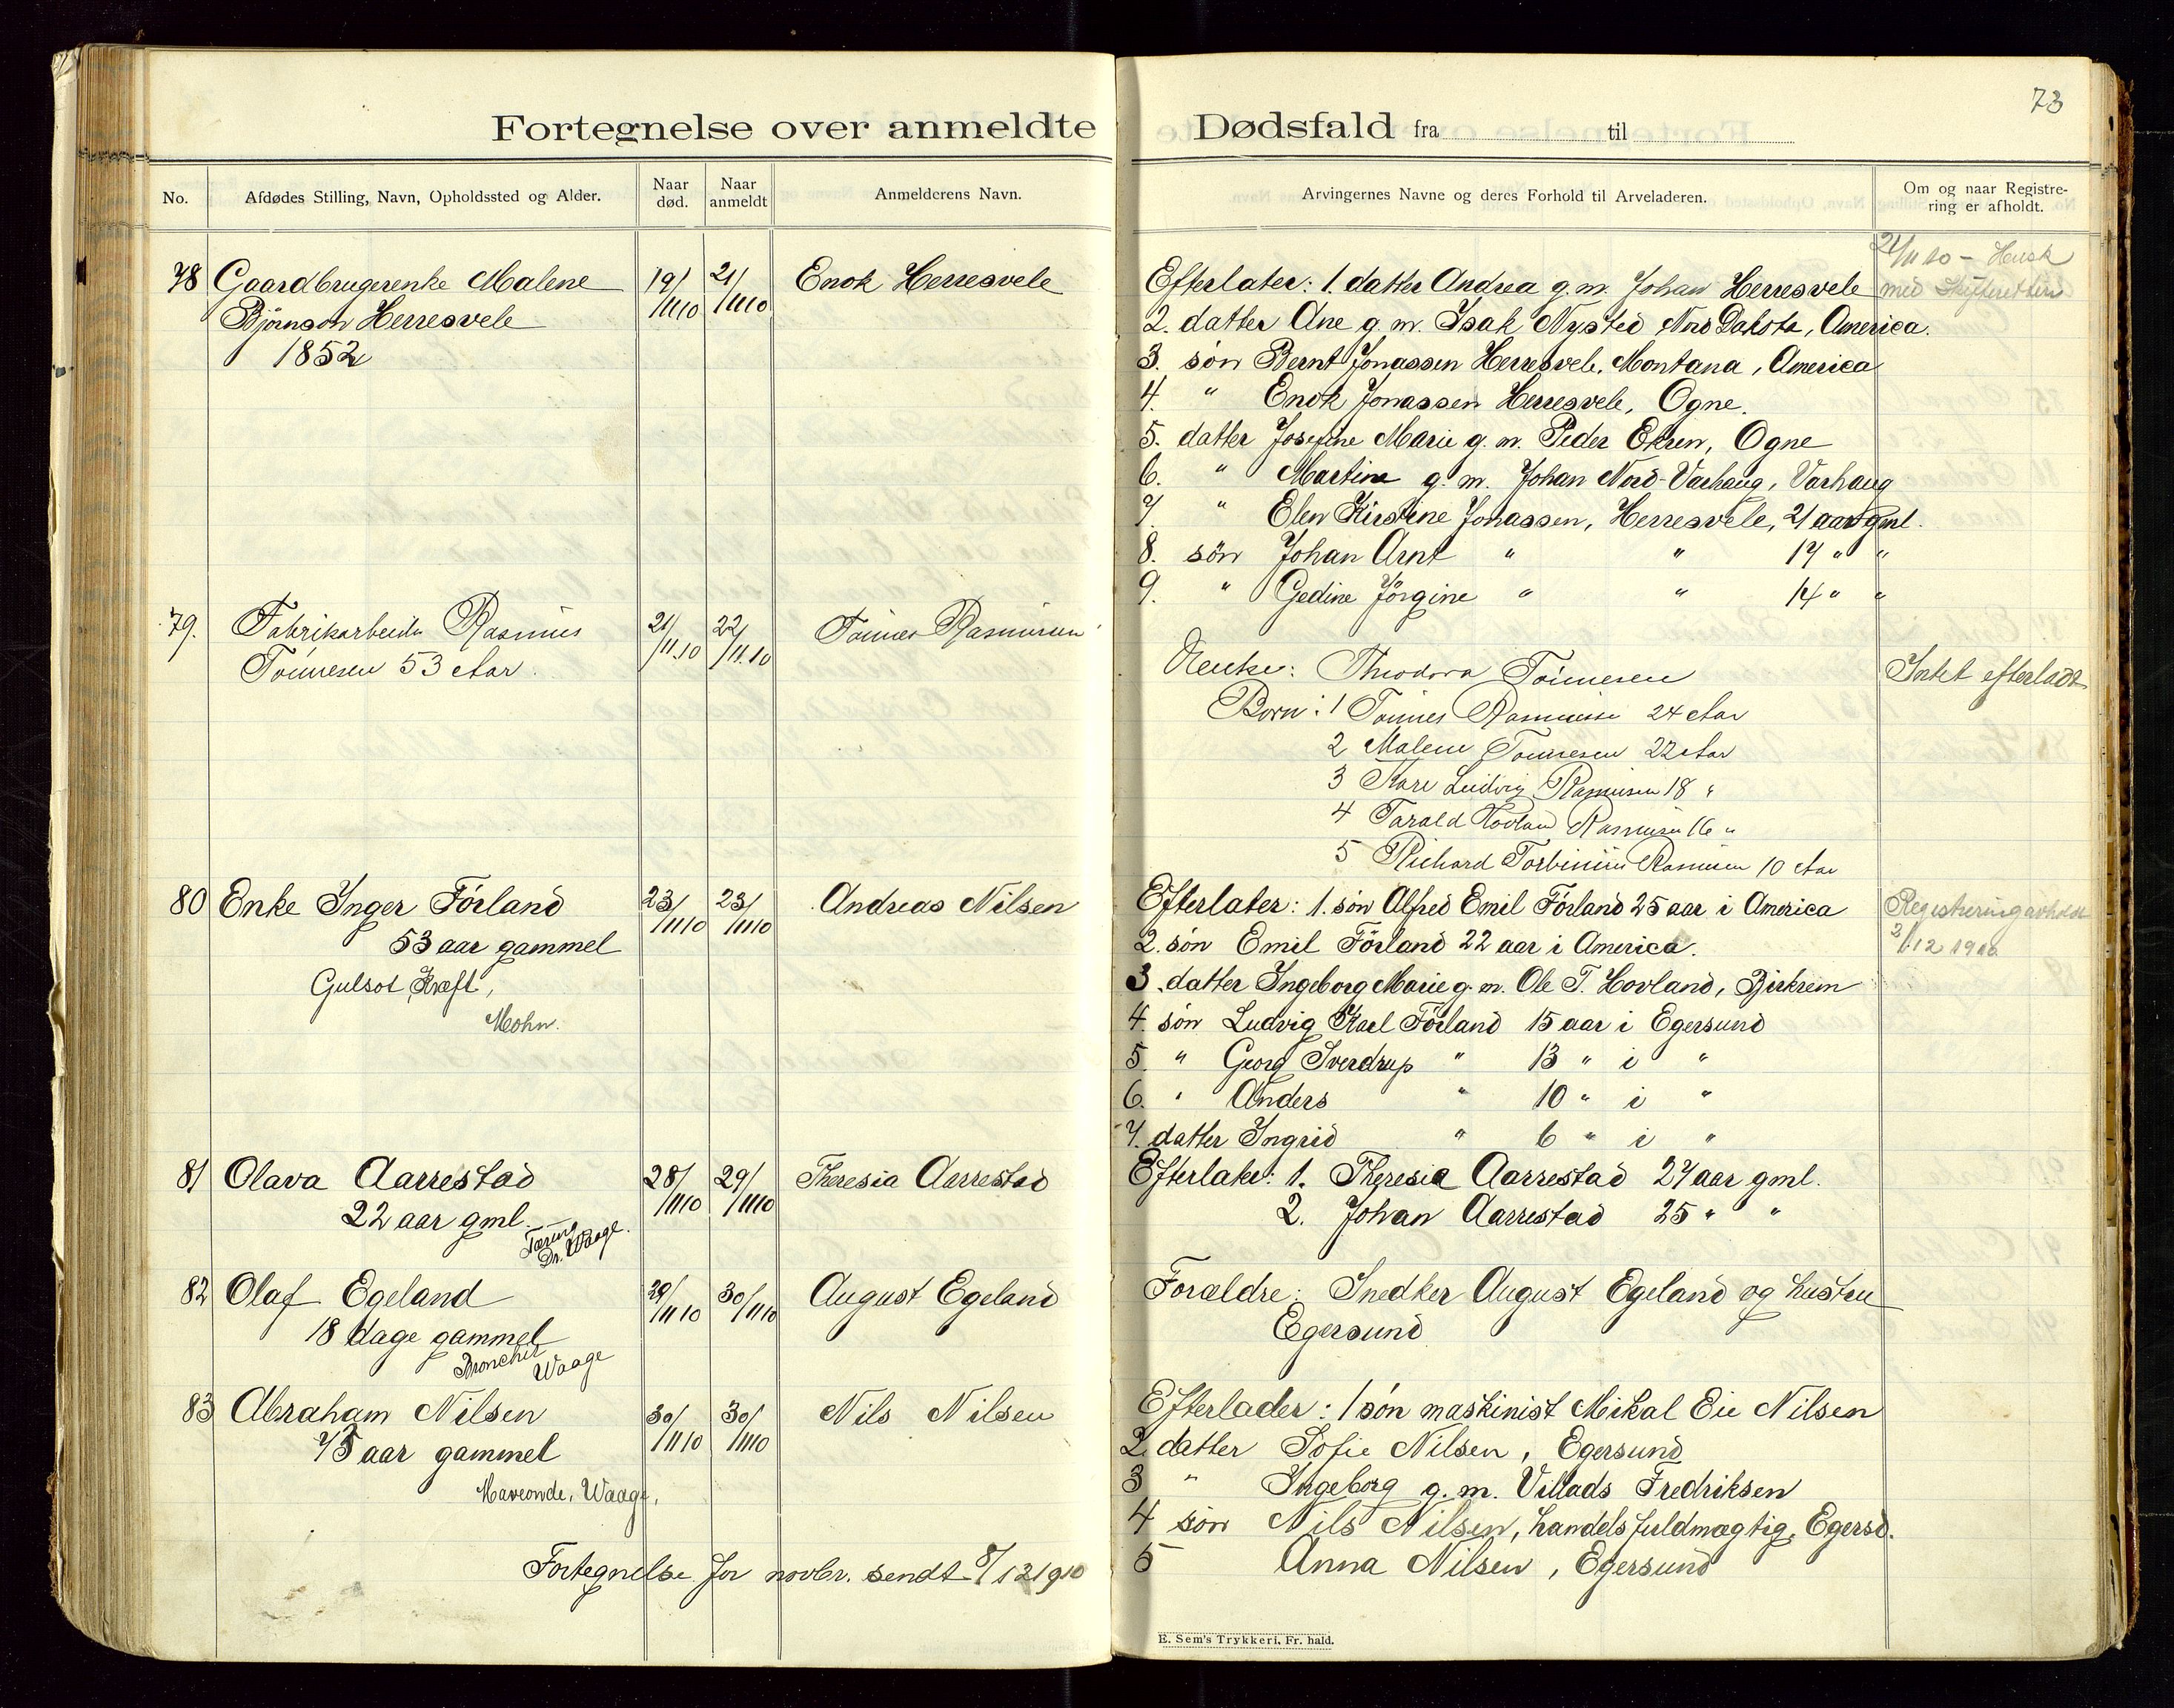 73
Fortegnelse over anmeldte Dødsfald fra til
No.
Afdødes Stilling, Navn, Opholdssted og Alder.
Naar død.
Naar anmeldt
Anmelderens Navn.
Arvingernes Navne og deres Forhold til Arveladeren.
Om og naar Registrering er afholdt.
78 Gaardbrugerenke Malene
Bjørnson Herresvele
1852
19/11 10
21/11 10
Enok Herresvele
Efterlater: 1. datter Andrea g. m. Johan Herresvele
2. datter Ane g. m. Isak Nysted Nord Dakota, America.
3. søn Bernt Jonassen Herresvele, Montana, America
4. " Enok Jonassen Herresvele, Ogne.
5. datter Josefine Marie g. m. Peder Ekren, Ogne
6. " Martine g. m. Johan Nord-Varhaug, Varhaug
7. " Elen Kirstine Jonassen, Herresvele, 21 aar gml.
8. søn Johan Arnt " " 17 " "
9. " Gedine Jörgine " " 14 " "
21/11 10 - Husk
med Skifteretten
79. Fabrikarbeider Rasmus
Tönnesen 53 Aar.
21/11.10
22/11.10
Tönnes Rasmussen
Enke: Theodora Tönnesen
Børn: 1 Tönnes Rasmussen 24 Aar
2 Malene Tönnesen 22 Aar
3 Kare Ludvig Rasmusen 18 "
4 Tarald Hovland Rasmusen 16 "
5 Richard Rasmusen 10 Aar
Intet efterladt
80 Enke Inger Förland
53 aar gammel
Gulsot, Kræft,
Mohn.
23/11 10
23/11 10
Andreas Nilsen
Efterlater: 1. søn Alfred Emil Förland 25 aar i America
2. søn Emil Förland 22 aar i America.
3. datter Ingeborg Marie g. m. Ole T. Hovland, Birkrem
4. søn Ludvig Karl Förland 15 aar i Egersund
5. " Georg Sverdrup " 13 " i "
6. " Anders " 10 " i "
7. datter Ingrid " 6 " i "
Registrering avholdt
3/12 1910
81 Olava Aarrestad
22 aar gml.
Tæring
Dr. Waage.
28/11 10
29/11 10
Theresia Aarrestad
Efterlater: 1. Theresia Aarrestad 27 aar gml.
2. Johan Aarrestad 25 " "
82 Olaf Egeland
18 dage gammel
Bronchit
Waage
29/11 10
30/11 10
August Egeland
Forældre: Snedker August Egeland og hustru
Egersund
83 Abraham Nilsen
75 aar gammel
Maveonde, Waage,
30/11 10
30/11 10
Nils Nilsen
Efterlader: 1 søn maskinist Mikal Eie Nilsen
2. datter Sofie Nilsen, Egersund
3 " Ingeborg g. m. Villads Fredriksen
4 søn Nils Nilsen, handelsfuldmægtig, Egersd.
5 Anna Nilsen, Egersund
Fortegnelse for novbr. sendt 8/12 1910
E. Sem's Trykkeri, Fr. hald.